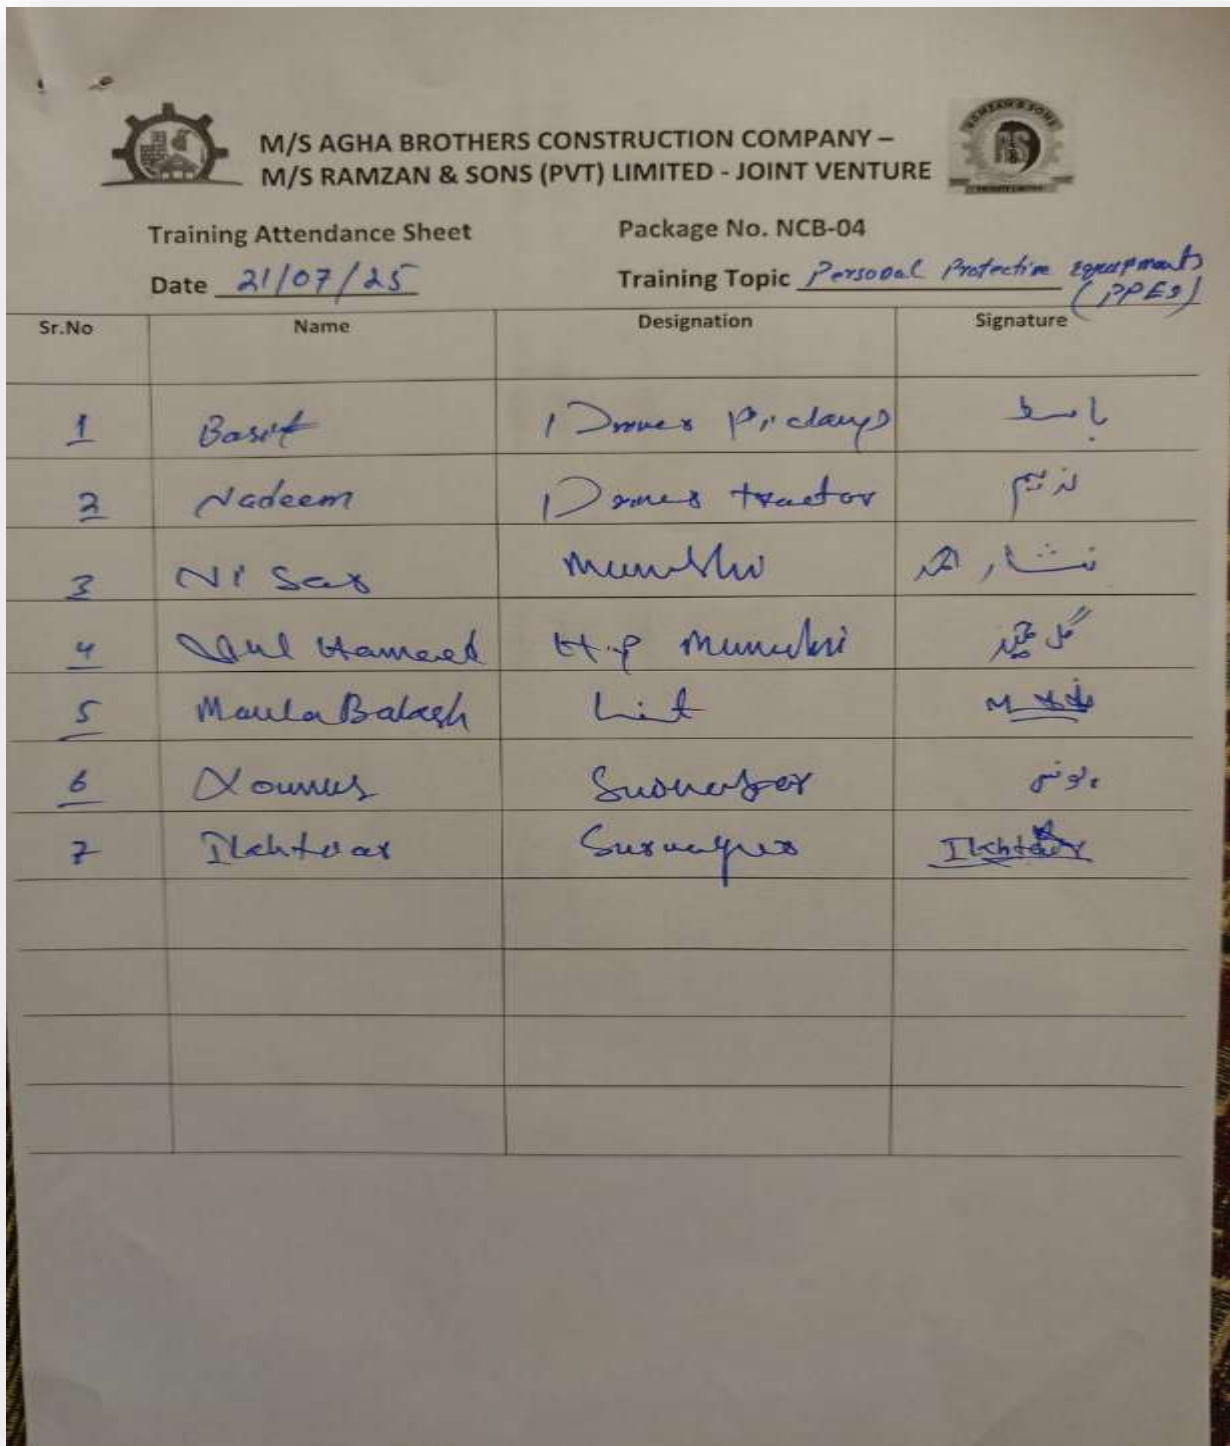 M/S AGHA BROTHERS CONSTRUCTION COMPANY –
M/S RAMZAN & SONS (PVT) LIMITED - JOINT VENTURE
Training Attendance Sheet Package No. NCB-04
Date 21/07/25 Training Topic Personal Protective Equipments
(PPEs)
Sr.No Name Designation Signature
1 Basit Driver باسط
2 Nadeem Driver tractor ندیم
3 Nisar Munshi نثار احمد
4 Gul Hameed H.P Munshi گل حمید
5 Maula Bakash
6 Younus یونس
7 Ikhtiar Ikhtiar